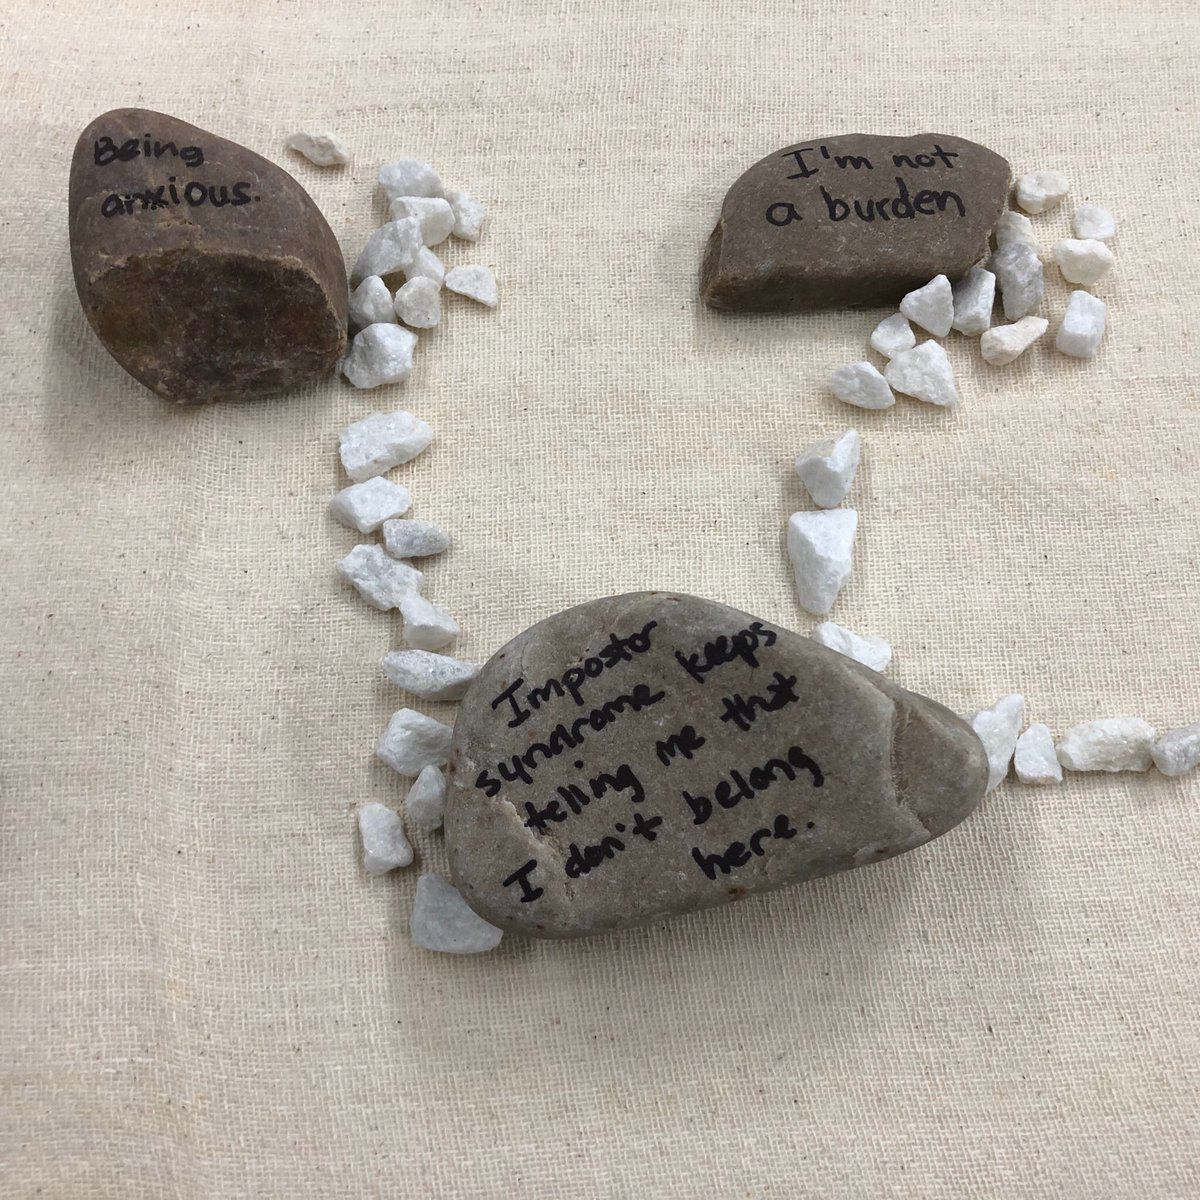 Being
anxious.
I'm not
a burden
Impostor
syndrome keeps
telling me that
I don't belong
here.